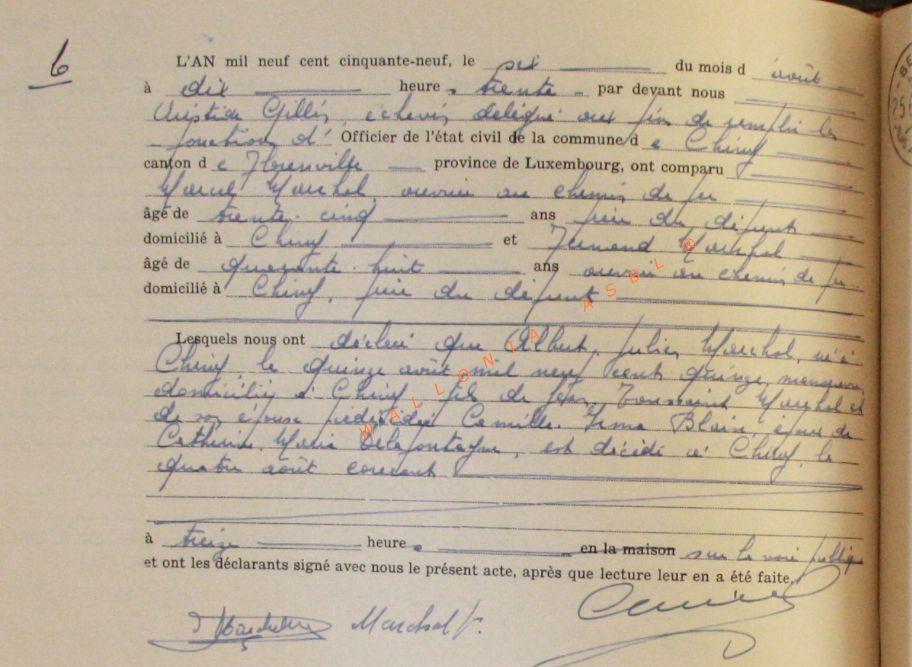 6
L'AN mil neuf cent cinquante-neuf, le six du mois d août
à dix heure s trente par devant nous
Gillis, échevin délégué aux fins de remplir les
fonctions d' Officier de l'état civil de la commune d e Chiny
canton d e Florenville province de Luxembourg, ont comparu
Marchal, ouvrier au chemin de fer
âgé de trente-cinq ans frère du défunt
domicilié à Chiny et Fernand Marchal
âgé de quarante-huit ans ouvrier au chemin de fer
domicilié à Chiny, frère du défunt
Lesquels nous ont déclaré que Albert, Julien Marchal, né à
Chiny, le quinze août mil neuf cent quinze, manoeuvre
domicilié à Chiny, fils de Jean Toussaint Marchal et
de son épouse prédécédée Camille Irma Blain, époux de
Catherine Maria Delafontayne, est décédé à Chiny, le
quatre août courant
à treize heure s en la maison sur la voie publique
et ont les déclarants signé avec nous le présent acte, après que lecture leur en a été faite.
Marchal F.
WALLONIA ASBL ©